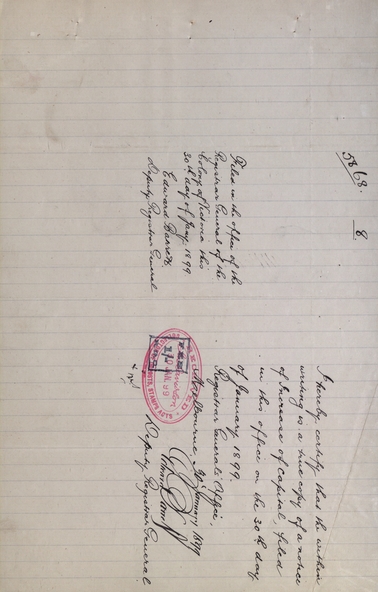 5868.
8
Filed in the office of the
Registrar General of the
Colony of Victoria this
30th day of Jany 1899
Edward Barrett
Deputy Registrar General
I hereby certify that the within
writing is a true copy of a notice
of Increase of Capital, filed
in this office on the 30th day
of January 1899.
Registrar General's Office,
Melbourne, 30 January 1899
Deputy Registrar General.